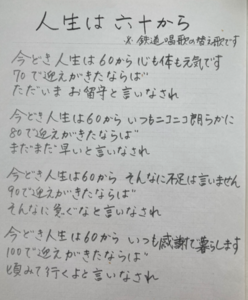 人生は六十から
※鉄道唱歌の替え歌です
今どき人生は60から 心も体も元気です
70で迎えがきたならば
ただいまお留守と言いなされ
今どき人生は60から いつもニコニコ朗らかに
80で迎えがきたならば
まだまだ早いと言いなされ
今どき人生は60から そんなに不足は言いません
90で迎えがきたならば
そんなに急ぐなと言いなされ
今どき人生は60から いつも感謝で暮らします
100で迎えがきたならば
頃みて行くよと言いなされ